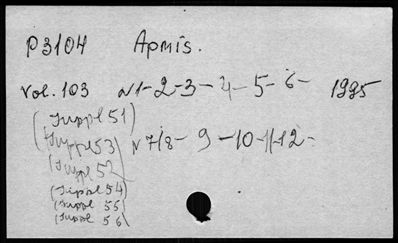 P3104 Apmis.
Vol. 103 N1-2-3-4-5-6- 1995
(Suppl 51)
(Suppl 53) N7/8-9-10-11-12-
(Suppl 52
(Suppl 54)
(Suppl 55)
(Suppl 56)